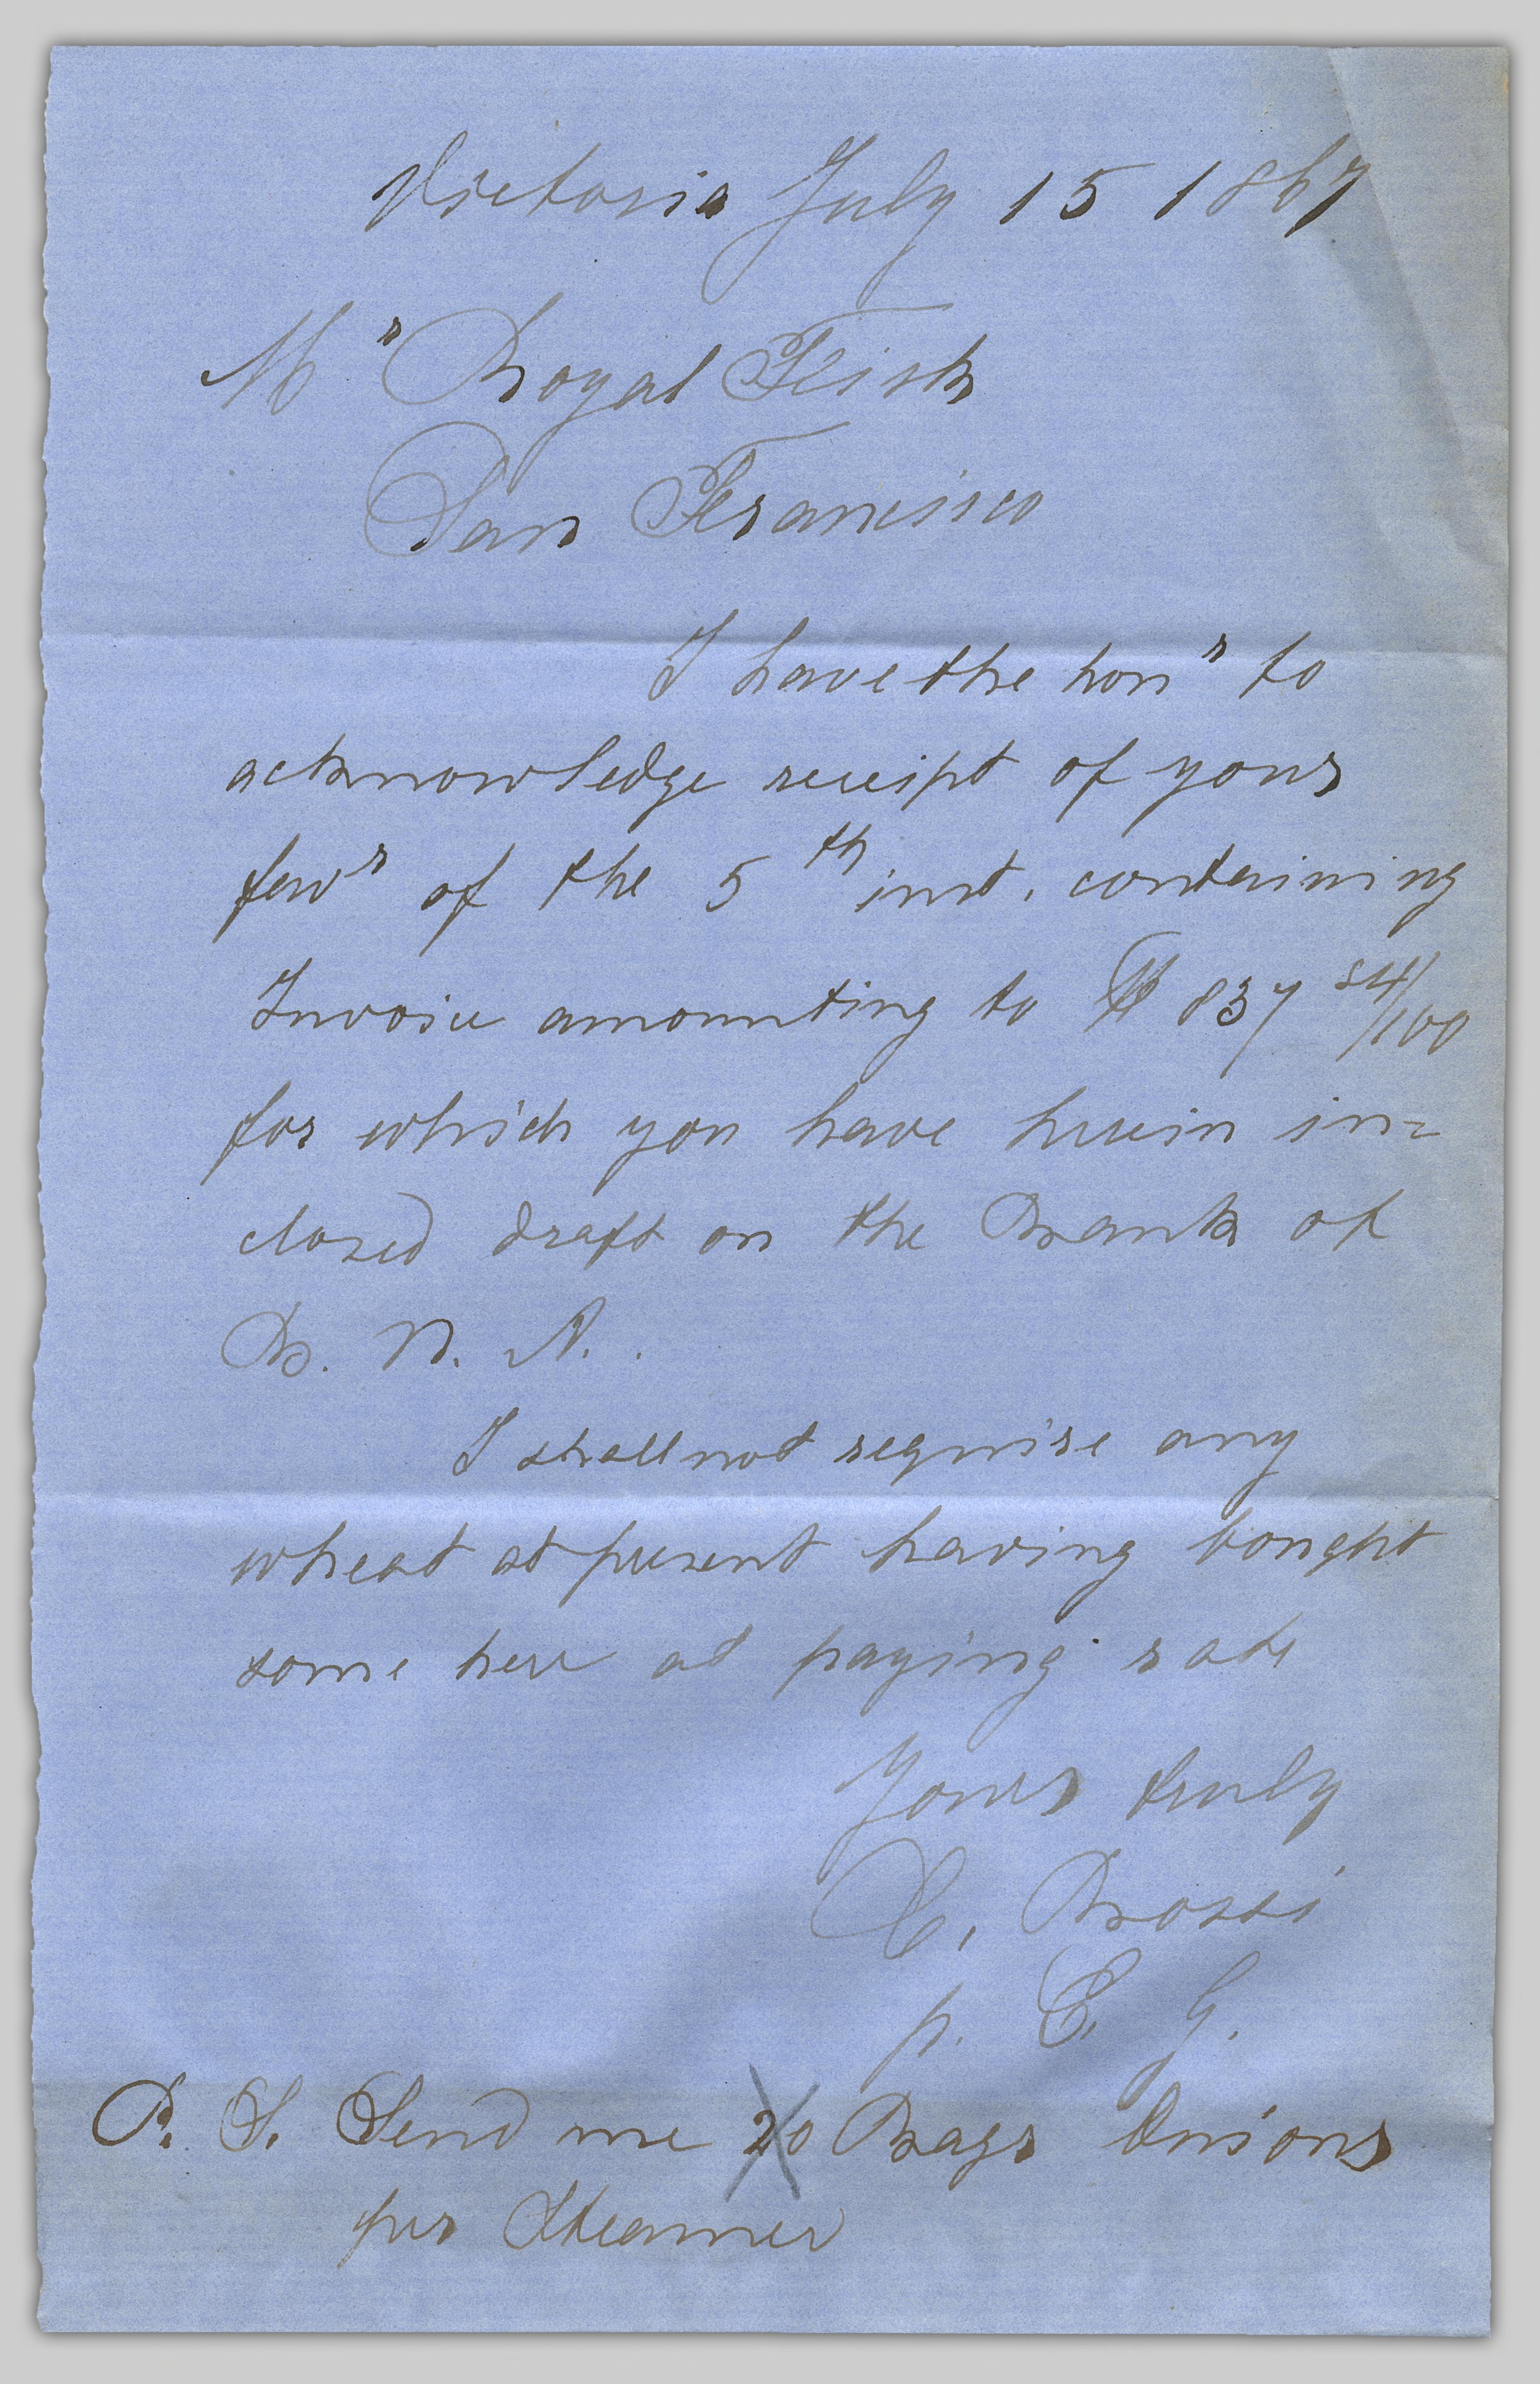 Victoria July 15 1867
Mr Royal Fisk
San Francisco
I have the honr to
acknowledge receipt of your
favr of the 5th inst. containing
Invoice amounting to $ 837 54/100
for which you have herein in=
closed draft on the Bank of
B. N. A.
I shall not require any
wheat at present having bought
some here at paying rate
Yours truly
C. Bossi
p. C. G.
P. S. Send me 20 Bags Onions
per Steamer